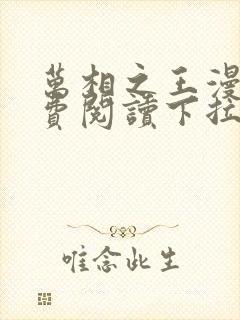 萬相之王漫
費閱讀下拉
唯念此生